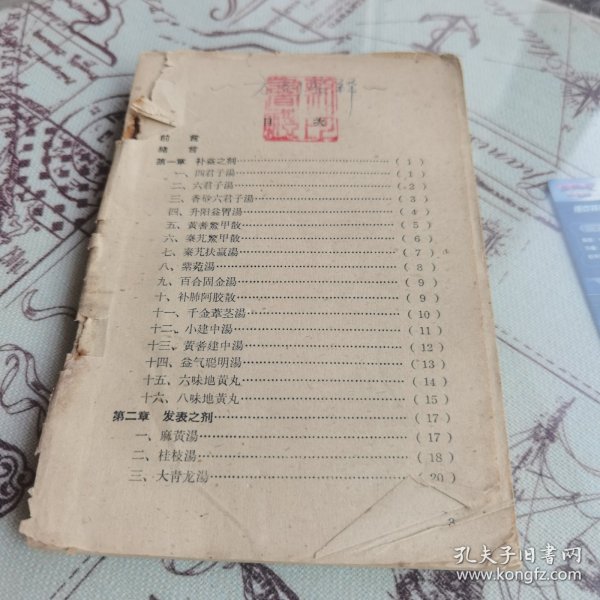 目 次
前 言
緒 言
第一章 补益之剂………( 1 )
一、四君子湯………( 1 )
二、六君子湯………( 2 )
三、香砂六君子湯………( 3 )
四、升阳益胃湯………( 4 )
五、黃耆鱉甲散………( 5 )
六、秦艽鱉甲散………( 6 )
七、秦艽扶羸湯………( 7 )
八、紫菀湯………( 8 )
九、百合固金湯………( 9 )
十、补肺阿胶散………( 9 )
十一、千金葦茎湯………( 10 )
十二、小建中湯………( 11 )
十三、黃耆建中湯………( 12 )
十四、益气聪明湯………( 13 )
十五、六味地黃丸………( 14 )
十六、八味地黃丸………( 15 )
第二章 发表之剂………( 17 )
一、麻黃湯………( 17 )
二、桂枝湯………( 18 )
三、大青龙湯………( 20 )
3
孔夫子旧书网
www.kongfz.com